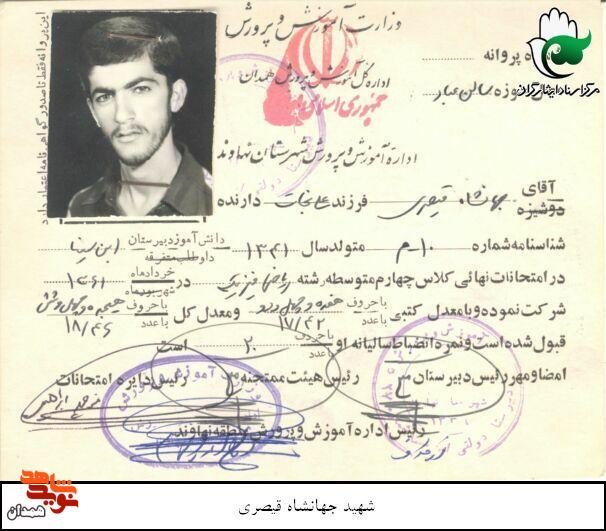 وزارت آموزش و پرورش
اداره کل آموزش و پرورش همدان
جمهوری اسلامی
اداره آموزش و پرورش شهرستان نهاوند
ه پروانه
حوزه سالن
مرکز اسناد ایثارگران
این پروانه فقط تا صدور گواهی نامه اعتبار دارد
آقای دوشیزه جهانشاه قیصری فرزند علی‌نجات دارنده
شناسنامه شماره ۱۰-م متولد سال ۱۳۴۱ دانش آموز دبیرستان داوطلب متفرقه ابن سینا
در امتحانات نهائی کلاس چهارم متوسطه رشته ریاضی فیزیک در خرداد ماه شهریور ماه ۶۱-۶۰
شرکت نموده و با معدل کتبی با حروف هفده و با عدد ۱۷/۴۲ و معدل کل با حروف هیجده و با عدد ۱۸/۴۶
قبول شده است و نمره انضباط سالیانه او با حروف با عدد ۲۰ است
امضاء و مهر رئیس دبیرستان رئیس هیئت ممتحنه رئیس دایره امتحانات
رئیس اداره آموزش و پرورش منطقه نهاوند
نوید شاهد
همدان
شهید جهانشاه قیصری